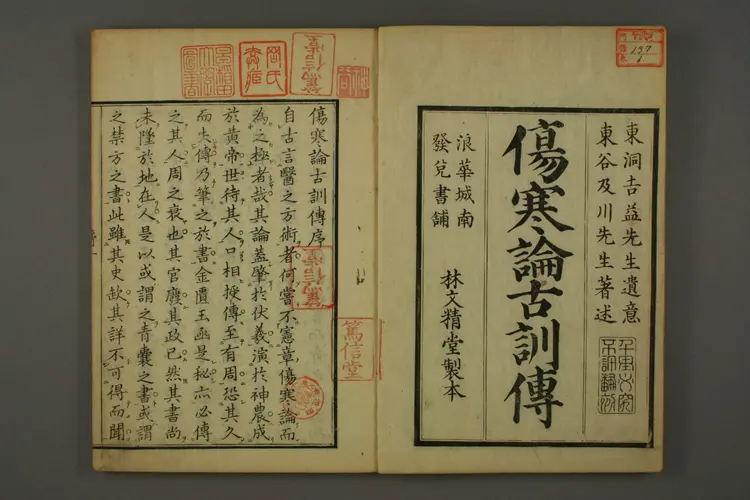 東洞吉益先生遺意
東谷及川先生著述
傷寒論古訓傳
浪華城南
發兌書舖
林文精堂製本
千里必究
不許翻刻
137
1
傷寒論古訓傳序
自古言醫之方術者何嘗不憲章傷寒論而
為之極者哉其論蓋肇於伏羲演於神農成
於黄帝世待其人口相授傳至有周恐其久
而失傳乃筆之於書金匱玉函是秘亦必傳
之其人周之衰也其官廢其政已然其書尚
未墜於地在人是以或謂之青囊之書或謂
之禁方之書此雖其史缺其詳不可得而聞
篤信堂